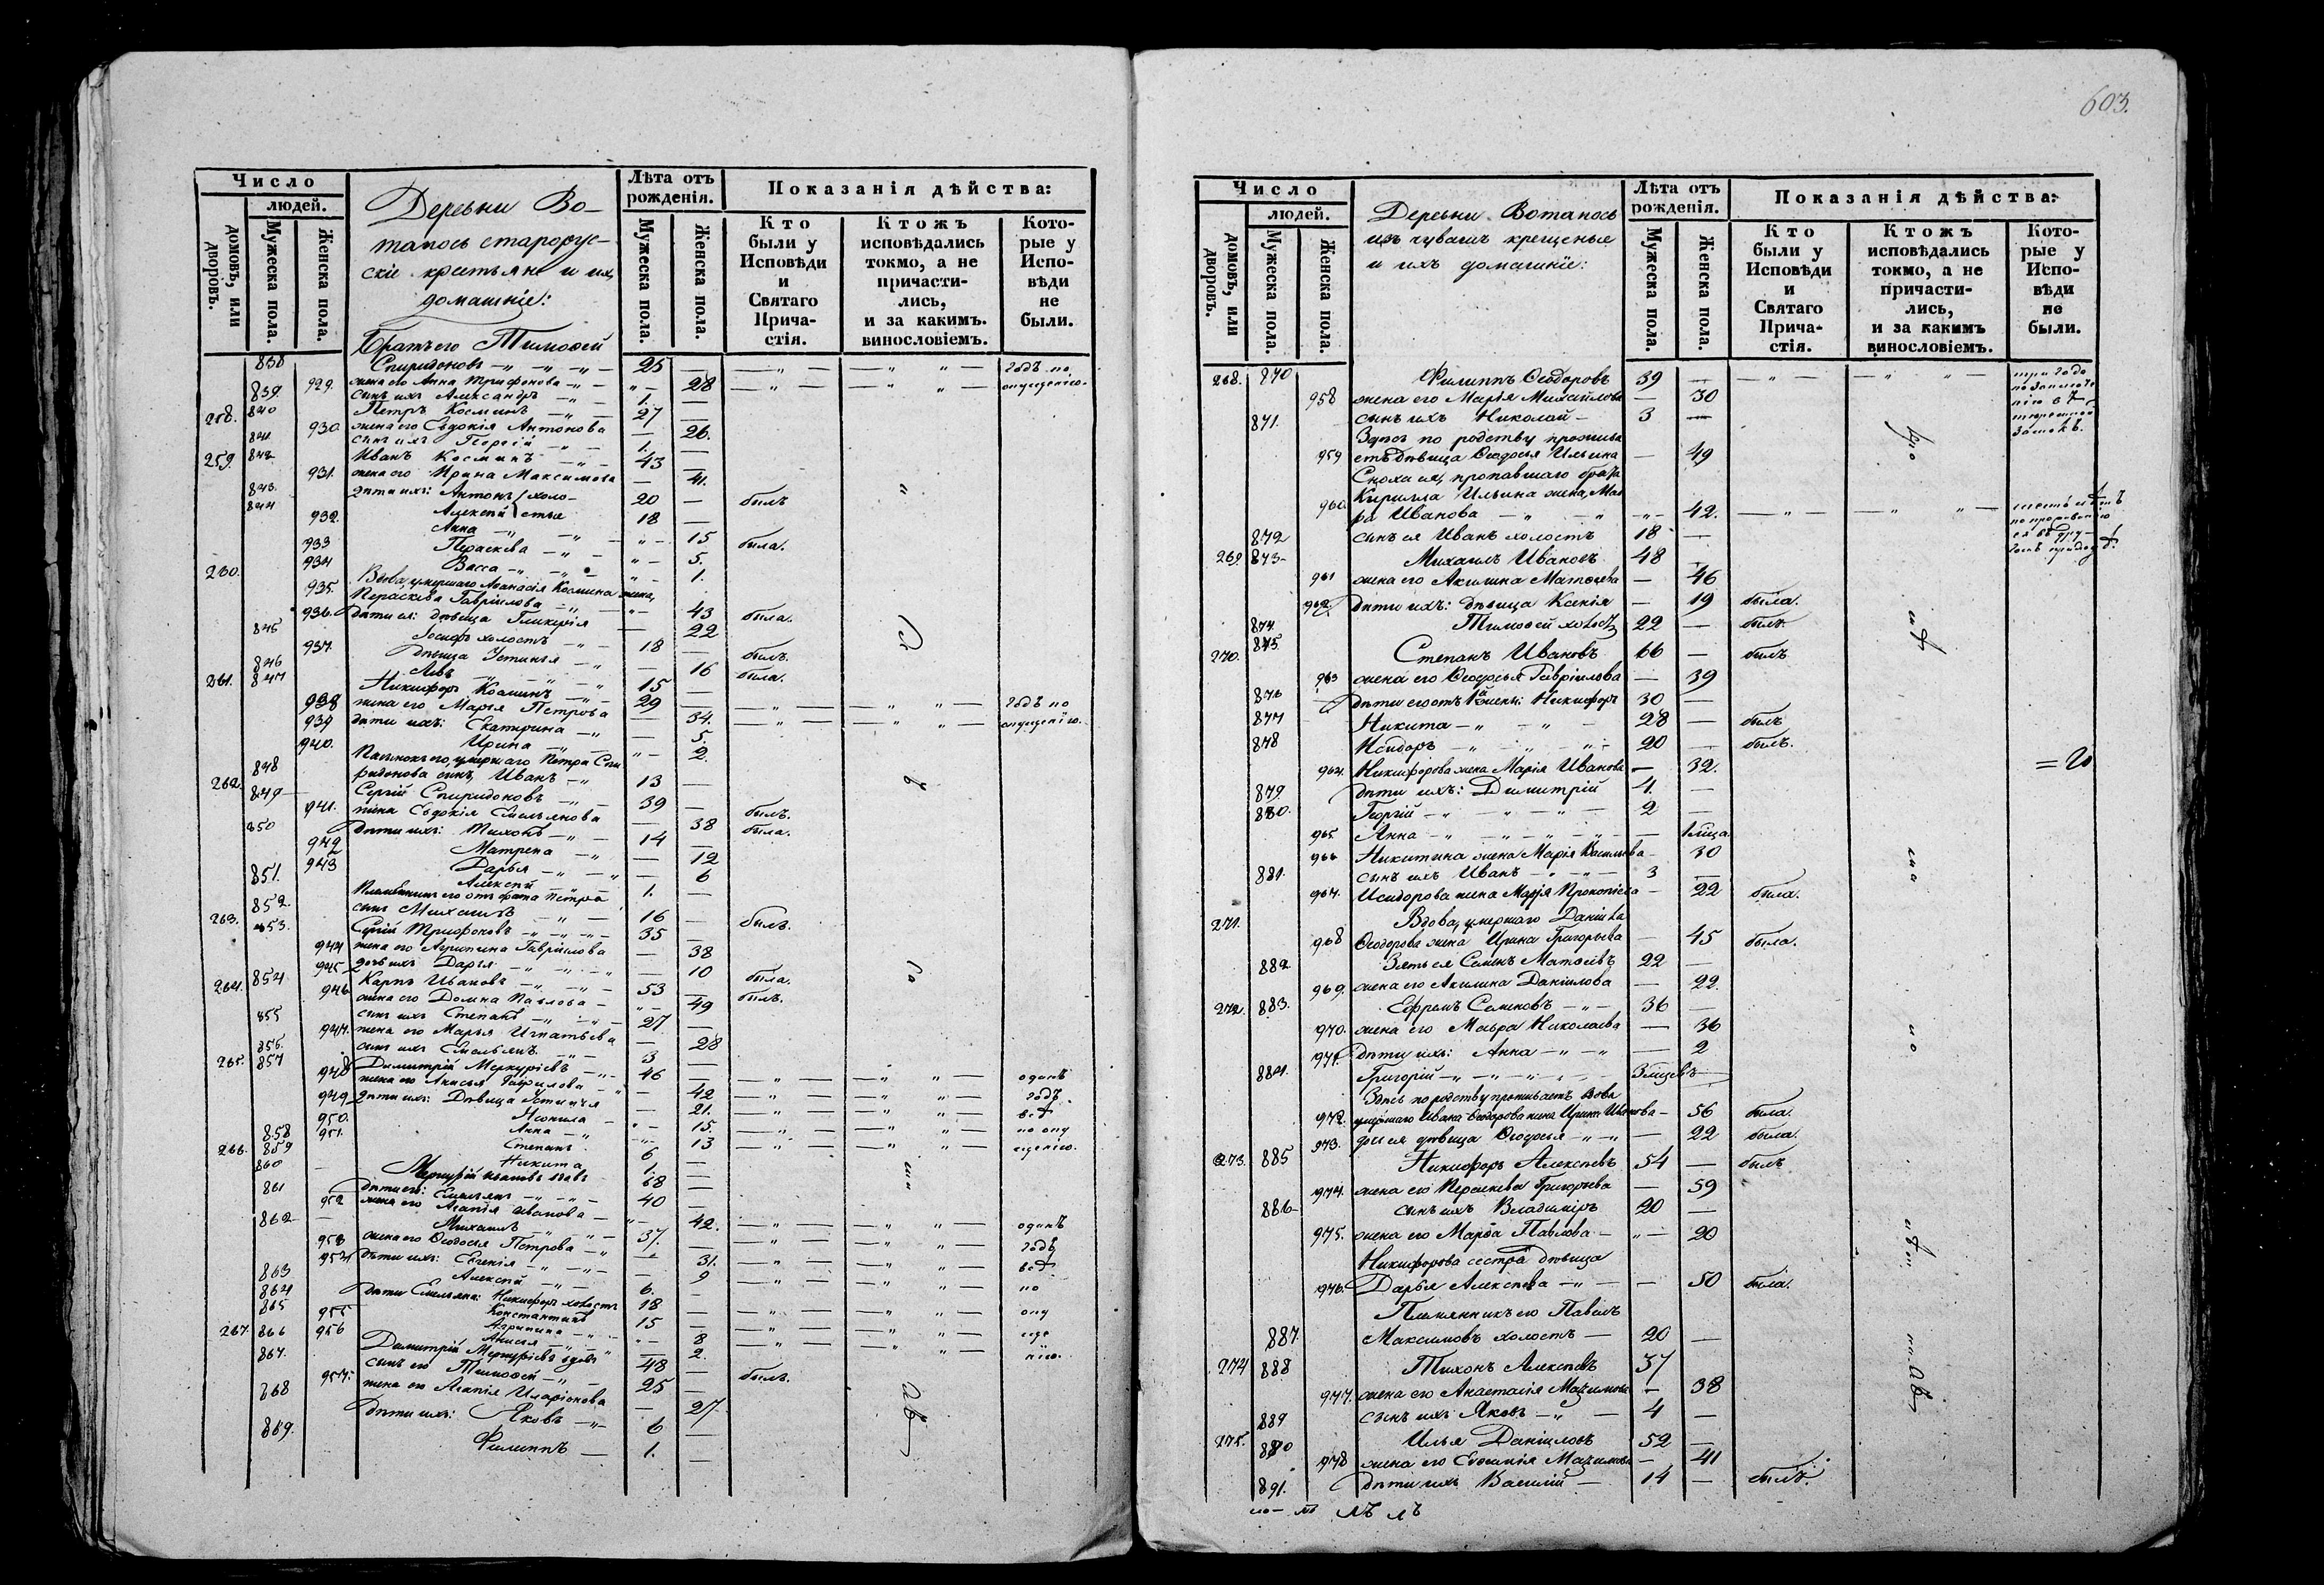 603.
Число
людей.
домовъ, или дворовъ.
Мужеска пола.
Женска пола.
Деревни Во-
танось старорус-
скіе крестьяне и ихъ
домашніе:
Лѣта отъ рожденія.
Мужеска пола.
Женска пола.
Показанія дѣйства:
Кто были у Исповѣди и Святаго Прича- стія.
Ктожъ исповѣдались токмо, а не причасти- лись, и за какимъ. винословіемъ.
Кото- рые у Испо- вѣди не были.
Братъ его Тимофей
838 Спиридоновъ 25 годъ по
929. жена его Анна Трифонова 28 опущенію.
839. сынъ ихъ Александръ 1.
258. 840 Петръ Косминъ 27
930 жена его Евдокія Антонова 26.
841 сынъ ихъ Георгій 1.
259. 842 Иванъ Косминъ 43
931. жена его Ирина Максимова 41.
843. дѣти ихъ: Антонъ холо- 20 былъ
844 Алексѣй стые 18
932. Анна 15 была.
933 Параскева 5.
934 Васса 1.
260. Вдова, умершаго Аѳанасія Космина жена,
935. Параскева Гавріилова 43 была.
936. Дѣти ея: дѣвица Гликерія 22
845 Іосифъ холостъ 18 былъ.
937. дѣвица Устинья 16 была.
846 Левъ 15
261. 847 Никифоръ Косминъ 29 годъ по
938 жена его Марья Петрова 34. опущенію.
939 дѣти ихъ: Екатерина 5.
940. Ирина 2.
Пасынокъ его, умершаго Петра Спи
848 ридонова сынъ, Иванъ 13
262. 849 Сергій Спиридоновъ 39 былъ.
941. жена Евдокія Емельянова 38 была.
850 дѣти ихъ: Тихонъ 14
942 Матрена 12
943 Дарья 6
851. Алексѣй 1.
Племянникъ его отъ брата Петра
852. сынъ Михаилъ 16 былъ.
263. 853. Сергій Трифоновъ 35
944 жена его Агрипина Гавріилова 38
945 дочь ихъ Дарья 10 была.
264. 854 Карпъ Ивановъ 53 былъ.
946 жена его Домна Павлова 49
855 сынъ ихъ Степанъ 27
947. жена его Марья Игнатьева 28
856. сынъ ихъ Емельянъ 3
265. 857 Димитрій Меркурьевъ 46 одинъ
948 жена его Анисья Гаврилова 42 годъ
949 дѣти ихъ: Дѣвица Устинья 21. всѣ
950. 15. по опу
951. Анна 13 щенію.
858 Степанъ 6
859 Никита 1.
266. 860 Меркурій Ивановъ вдовъ 68
861 дѣти его: Емельянъ 40
952 жена его Агапія Иванова 42. одинъ
862 Михаилъ 37. годъ
953 жена его Ѳеодосія Петрова 31. всѣ
954 дѣти ихъ: Евгенія 9 по
863 Алексѣй 6. опу
864 дѣти Емельяна: Никифоръ холостъ 18 ще
865 Константинъ 15 нію.
955 Агрипина 8
956 Анисья 2.
267 866 Димитрій Меркурьевъ вдовъ 48 былъ.
867. сынъ его Тимофей 25
957. жена его Агапія Иларіонова 27.
868 дѣти ихъ: Яковъ 6
869. Филиппъ 1.
Число
людей.
домовъ, или дворовъ.
Мужеска пола.
Женска пола.
Деревни Вотанось
изъ чувашъ крещеные
и ихъ домашніе:
Лѣта отъ рожденія.
Мужеска пола.
Женска пола.
Показанія дѣйства:
Кто были у Исповѣди и Святаго Прича- стія.
Ктожъ исповѣдались токмо, а не причасти- лись, и за какимъ винословіемъ.
Кото- рые у Испо- вѣди не были.
268. 870 Филиппъ Ѳеодоровъ 39 три года
958 жена его Марія Михайлова 30
871. сынъ ихъ Николай 3
Здѣсь по родству прожива
959 етъ дѣвица Ѳеодосья Ильина 49
Сноха ея, пропавшаго брата
Кирилла Ильина жена, Мав
960. ра Иванова 42.
872 сынъ ея Иванъ холостъ 18
269 873 Михаилъ Ивановъ 48
961 жена его Акилина Матѳеева 46
962. дѣти ихъ: дѣвица Ксенія 19 была.
874 Тимофей холостъ 22 былъ.
270. 875 Степанъ Ивановъ 66 былъ
963 жена его Ѳеодосья Гавріилова 39
876 дѣти его отъ 1й жены: Никифоръ 30
877 Никита 28 былъ
878 Исидоръ 20 былъ.
964. Никифорова жена Марія Иванова 32.
879 дѣти ихъ: Димитрій 4.
880. Георгій 2
965 Анна 1 мѣсяца
966 Никитина жена Марія Васильева 30
881. сынъ ихъ Иванъ 3
967. Исидорова жена Марья Прокопіева 22 была.
271. Вдова, умершаго Даніила
968 Ѳеодорова жена Ирина Григорьева 45 была.
882 Зять ея Семенъ Матѳеевъ 22
969. жена его Акилина Даніилова 22.
272. 883. Ефремъ Семеновъ 36
970. жена его Мавра Николаева 36
971. дѣти ихъ: Анна 2
884. Григорій 3 мѣсяцевъ
Здѣсь по родству проживаетъ вдова
972. умершаго Ивана Ѳеодорова жена Ирина Иванова 56 была.
973. дочь ея дѣвица Ѳеодосья 22 была.
273. 885 Никифоръ Алексѣевъ 54 былъ
974. жена его Параскева Григорьева 59
886 сынъ ихъ Владиміръ 20
975. жена его Марѳа Павлова 20
Никифорова сестра дѣвица
976. Дарья Алексѣева 50 была.
Племянникъ его Павелъ
887. Максимовъ холостъ 20
274 888 Тихонъ Алексѣевъ 37
977. жена его Анастасія Максимова 38
889 сынъ ихъ Яковъ 4
275. 880 Илья Даніиловъ 52
978 жена его Евфимія Максимова 41
891. дѣти ихъ Василій 14 былъ.